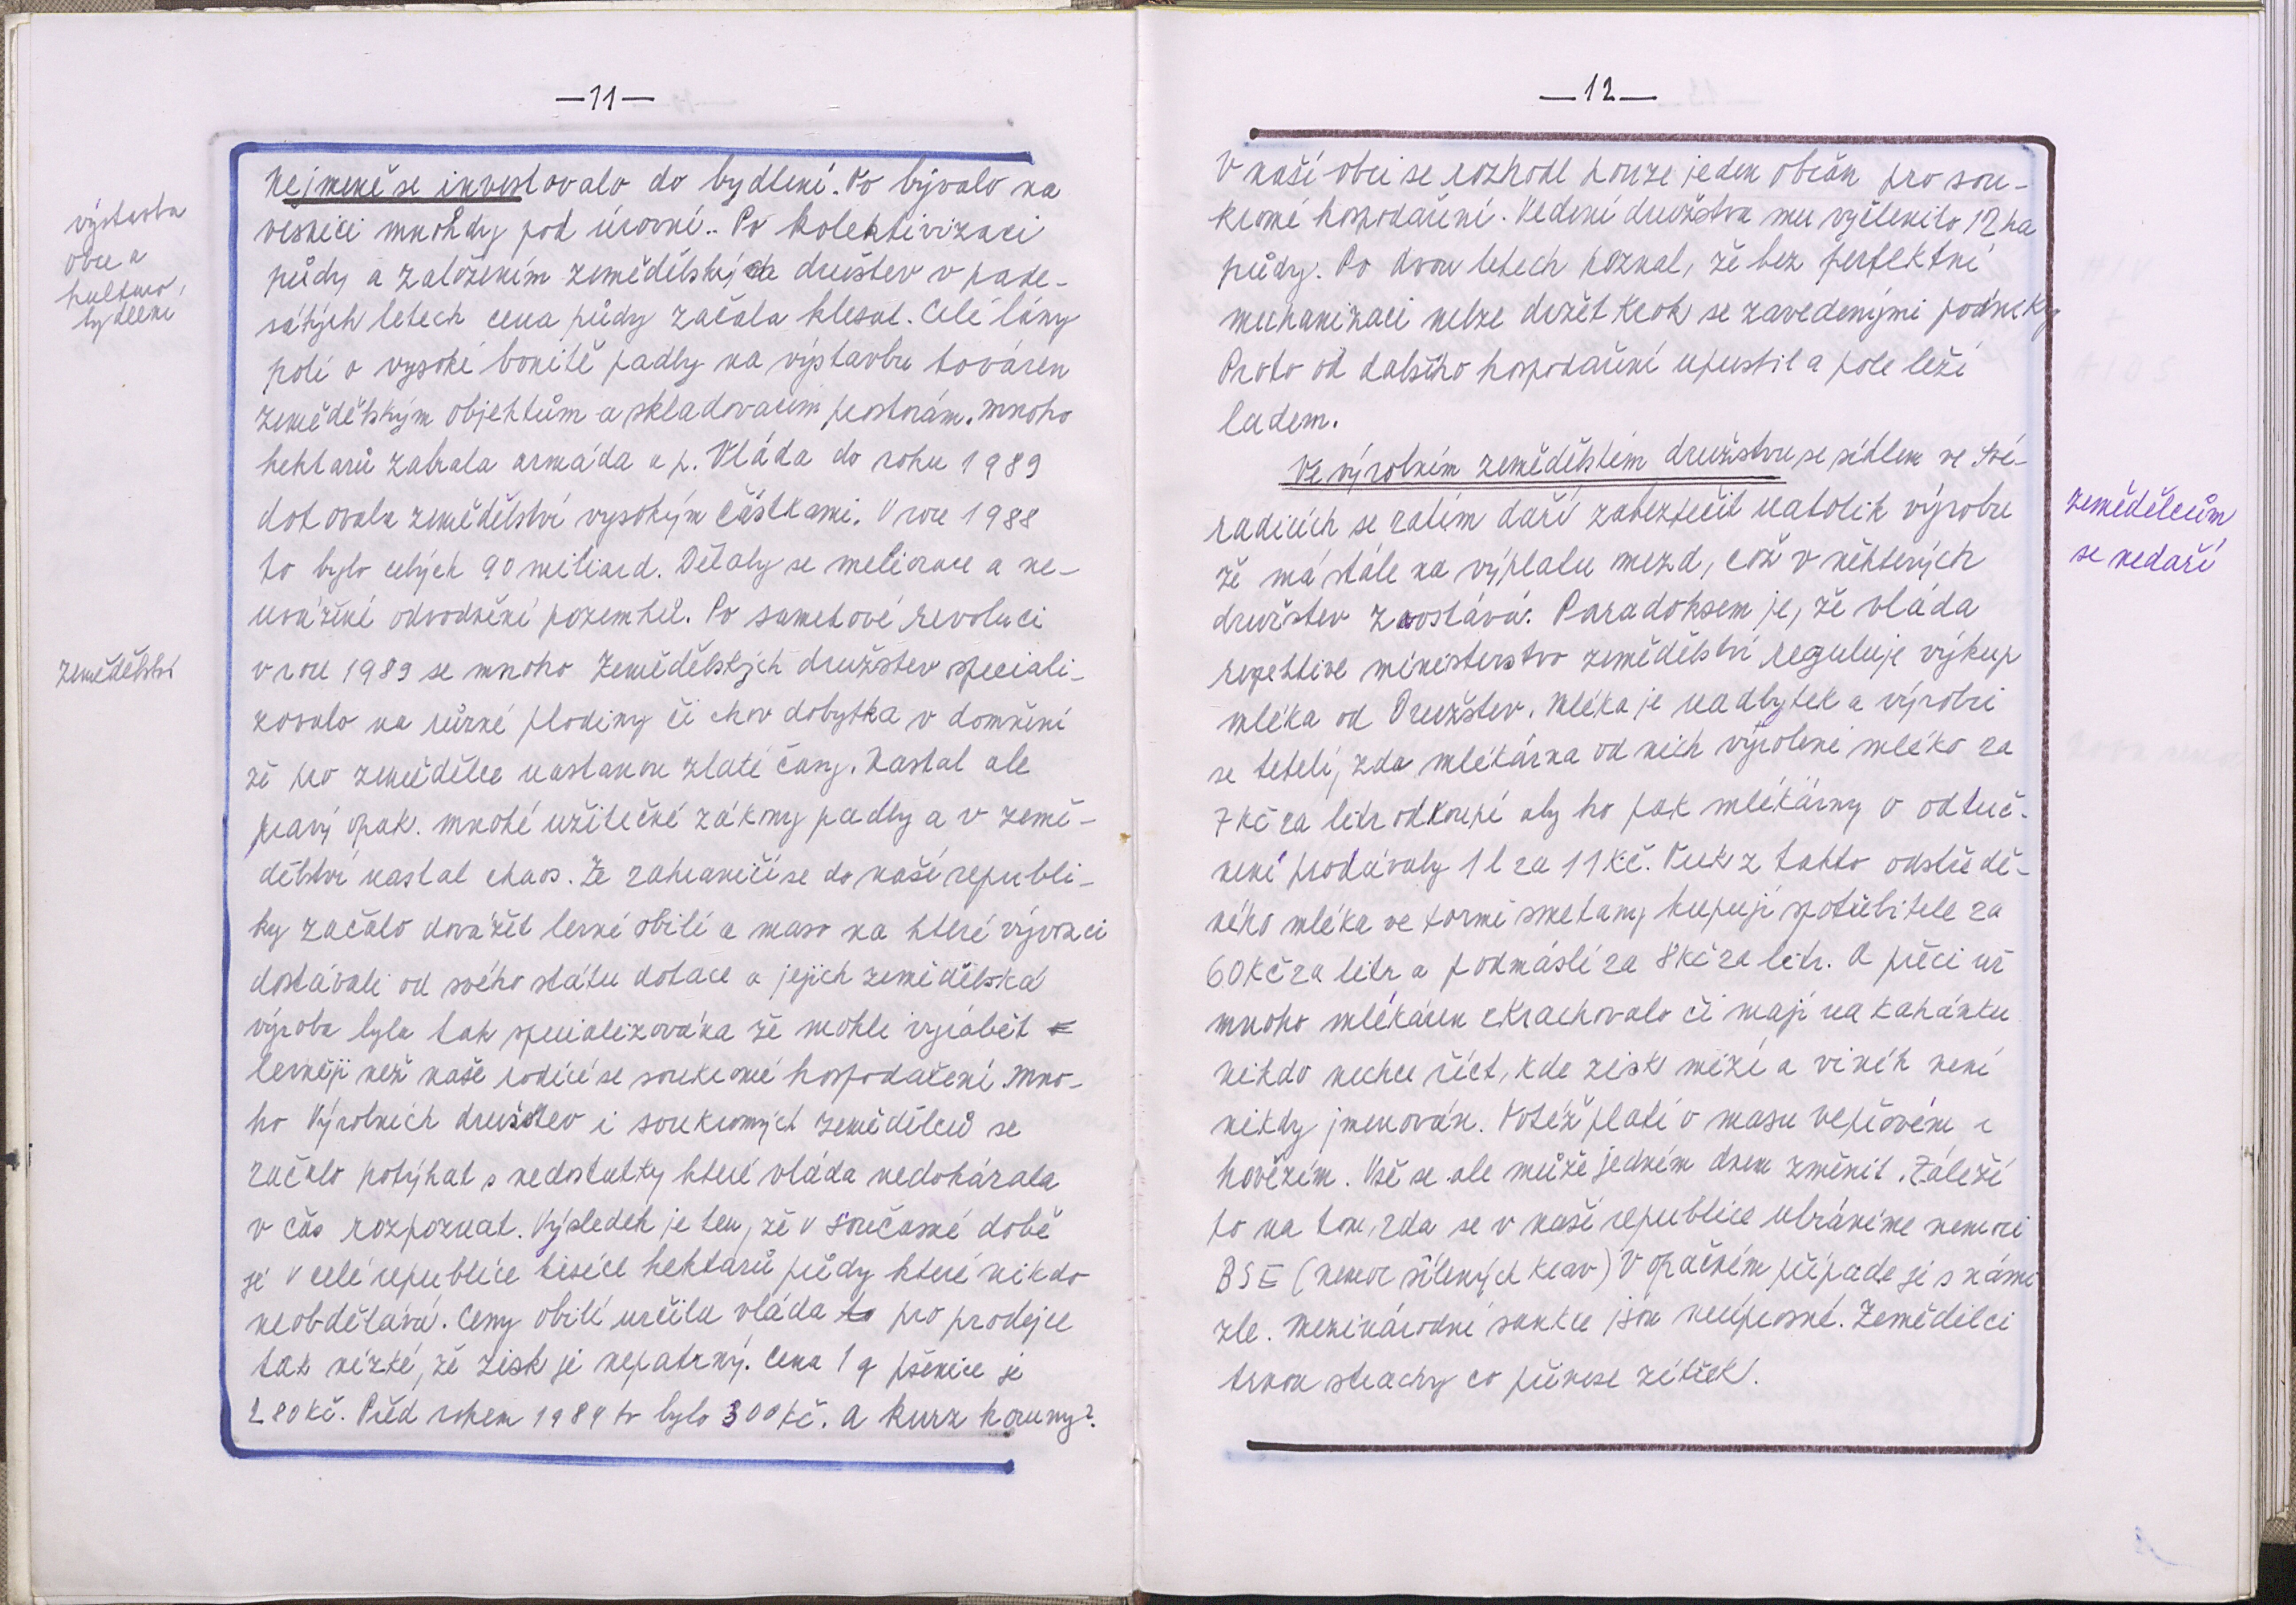 —11—
výstavba
obce a
kulturo,
bydlení
Nejméně se investovalo do bydlení. To bývalo na
vesnici mnohdy pod úrovní.. Po kolektivizaci
půdy a založením zemědělských družstev v pade-
sátých letech cena půdy začala klesat. Celé lány
polí o vysoké bonitě padly na výstavbu továren
zemědělským objektům a skladovacím prostorám. Mnoho
hektarů zabrala armáda a p. Vláda do roku 1989
dotovala zemědělství vysokým částkami. V roce 1988
to bylo celých 90 miliard. Dělaly se meliorace a ne-
uvážené odvodnění pozemků. Po sametové revoluci
zemědělství
v roce 1989 se mnoho zemědělských družstev speciali-
zovalo na různé plodiny či chov dobytka v domnění
že pro zemědělce nastanou zlaté časy. Nastal ale
pravý opak. Mnohé užitečné zákony padly a v země-
dělství nastal chaos. Ze zahraničí se do naší republi-
ky začalo dovážet levné obilí a maso na které vývozci
dostávali od svého státu dotace a jejich zemědělská
výroba byla tak specializována že mohli vyrábět
levněji než naše rodící se soukromé hospodaření. Mno-
ho Výrobních družstev i soukromých zemědělců se
začalo potýkat s nedostatky které vláda nedokázala
v čas rozpoznat. Výsledek je ten, že v současné době
je v celé republice tisíce hektarů půdy které nikdo
neobdělává. Ceny obilí určila vláda to pro prodejce
tak nízké, že zisk je nepatrný. Cena 1 q pšenice je
280 Kč. Před rokem 1989 to bylo 300 Kč. A kurz koruny?
—12—
V naší obci se rozhodl pouze jeden občan pro sou-
kromé hospodaření. Vedení družstva mu vyčlenilo 12 ha
půdy. Po dvou letech poznal, že bez perfektní
mechanizaci nelze držet krok se zavedenými podniky
Proto od dalšího hospodaření upustil a pole leží
ladem.
Ve výrobním zemědělském družstvu se sídlem ve Své-
radicích se zatím daří zabezpečit natolik výrobu
zemědělcům
se nedaří
že má stále na výplatu mezd, což v některých
družstev zaostává. Paradoksem je, že vláda
repektive ministerstvo zemědělství reguluje výkup
mléka od Družstev. Mléka je nadbytek a výrobci
se tetelí, zda mlékárna od nich výrobené mléko za
7 Kč za litr odkoupí aby ho pak mlékárny o odtuč-
nené prodávaly 1 l za 11 Kč. Tuk z tohto odstředě-
ného mléka ve formě smetany kupují spotřebitele za
60 Kč za litr a podmáslí za 8 Kč za litr. A přeci už
mnoho mlékáren zkrachovalo či mají na kahánku
nikdo nechce říct, kde zisk mizí a viník není
nikdy jmenován. Totéž platí o masu vepřovém i
hovězím. Vše se ale může jedním dnem změnit. Záleží
to na tom, zda se v naší republice ubráníme nemoci
BSE (nemoc šílených krav) V opačném případe je s námi
zle. Mezinárodní sankce jsou neúprosné. Zemědělci
trnou strachy co přinese zítřek!